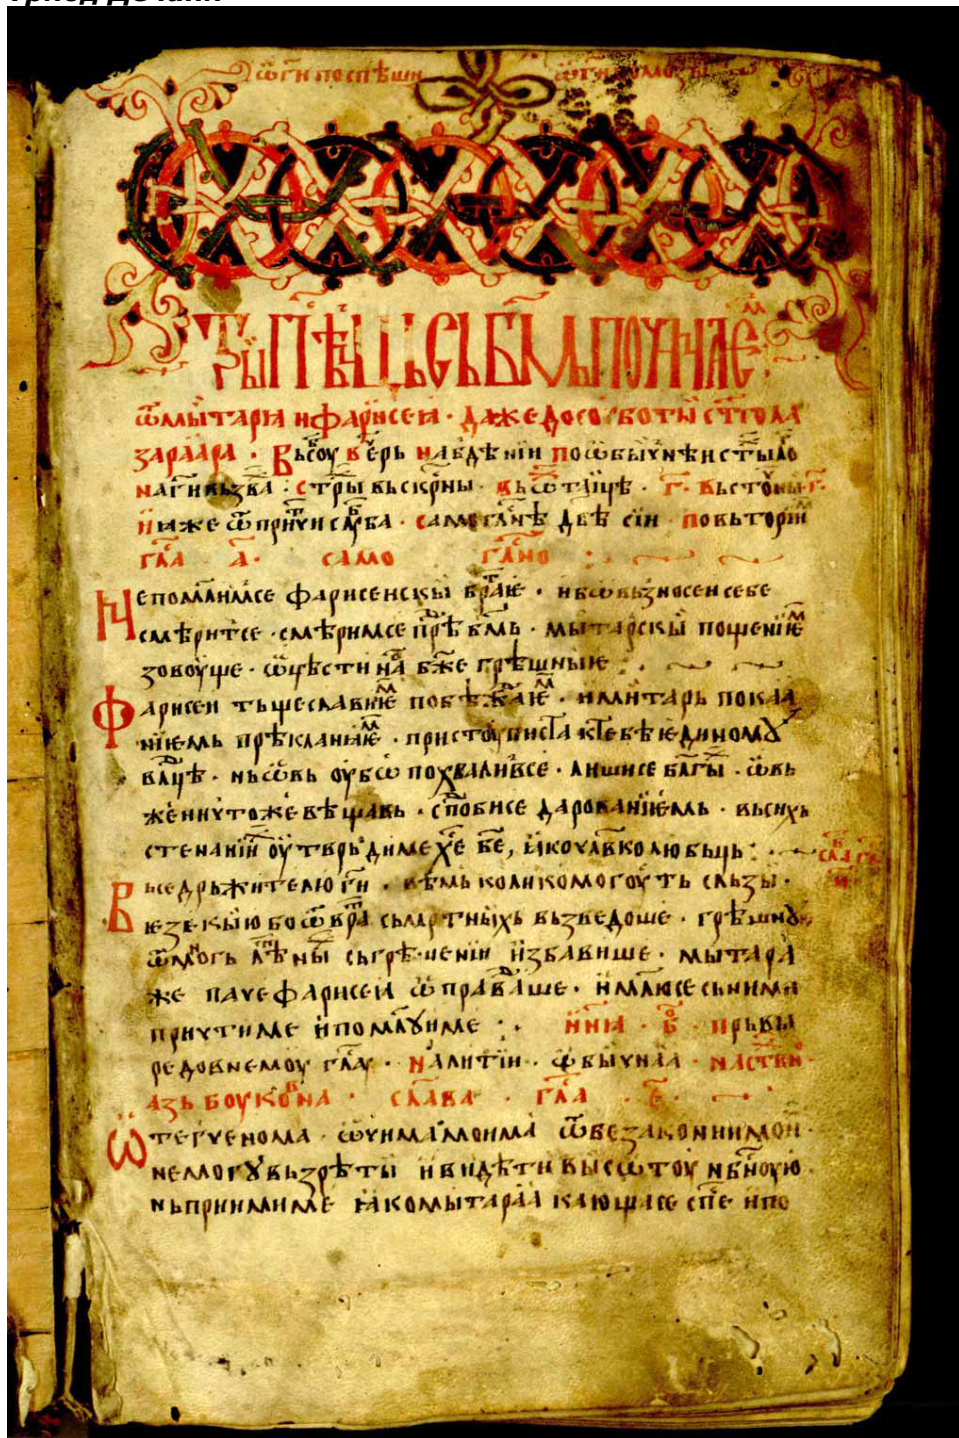 ѿ ги поспѣши
Трыпѣснцьсьбг҃мьпоч҃
ѿмытарꙗ и фарисеꙗ · даже до соуботы ст҃го ла
зараара · Вьсоу вчерь на бдѣнїи по ѡбычнѣи
на ги вьзва · стры вьскрⷭны ·
гла а҃ · само гл҃сно :
Не помлимсе фарисеискы братїе · ибо вьзносеи себе
смѣритсе · смѣримсе прѣⷣ бг҃мь · мытарскы пощенїемⷨ
зовоуще · ѡцѣсти на б҃же грѣшныѥ :
Фарисеи тьщеславїемⷨ побѣжⷣаѥмⷨ · и митарь покаа
нїемь прѣкланꙗѥⷨ · пристоуписта к тебѣ ѥдиномꙋ
влⷣцѣ · нь ѡвь оубѡ похваливсе · лишисе бл҃гы · ѡвь
же ничтоже вѣщавь · сп҃обисе дарованїемь · вь сихь
стенанїи оутврьди ме хе б҃е, ꙗко чл҃вколюбьць :
Вьседрьжителю ги · вѣмь колико могоуть сльзы ·
ѥзекыю бо ѿ вра сьмртныхь вьзведоше · грѣшнꙋю
ѿ многь лѣтны сьгрѣшенїи избавише · мытара
же паче фарисеꙗ ѡправдаше · и млюсе сь ними
причти ме и помлꙋи ме : · нн҃ꙗ · б · прьвы
редовнемоу глⷭу · На литїи · ѡбычнаа · на стиⷯвнⷪ
азь боуковна · слава · гла е҃ ·
Ѡтегченома · ѡчима моима ѿ безаконии мои
не могꙋ вьзрѣти и видѣти высѡтоу нб҃ноую
нь приими ме ꙗко мытараа кающасе сп҃се и по